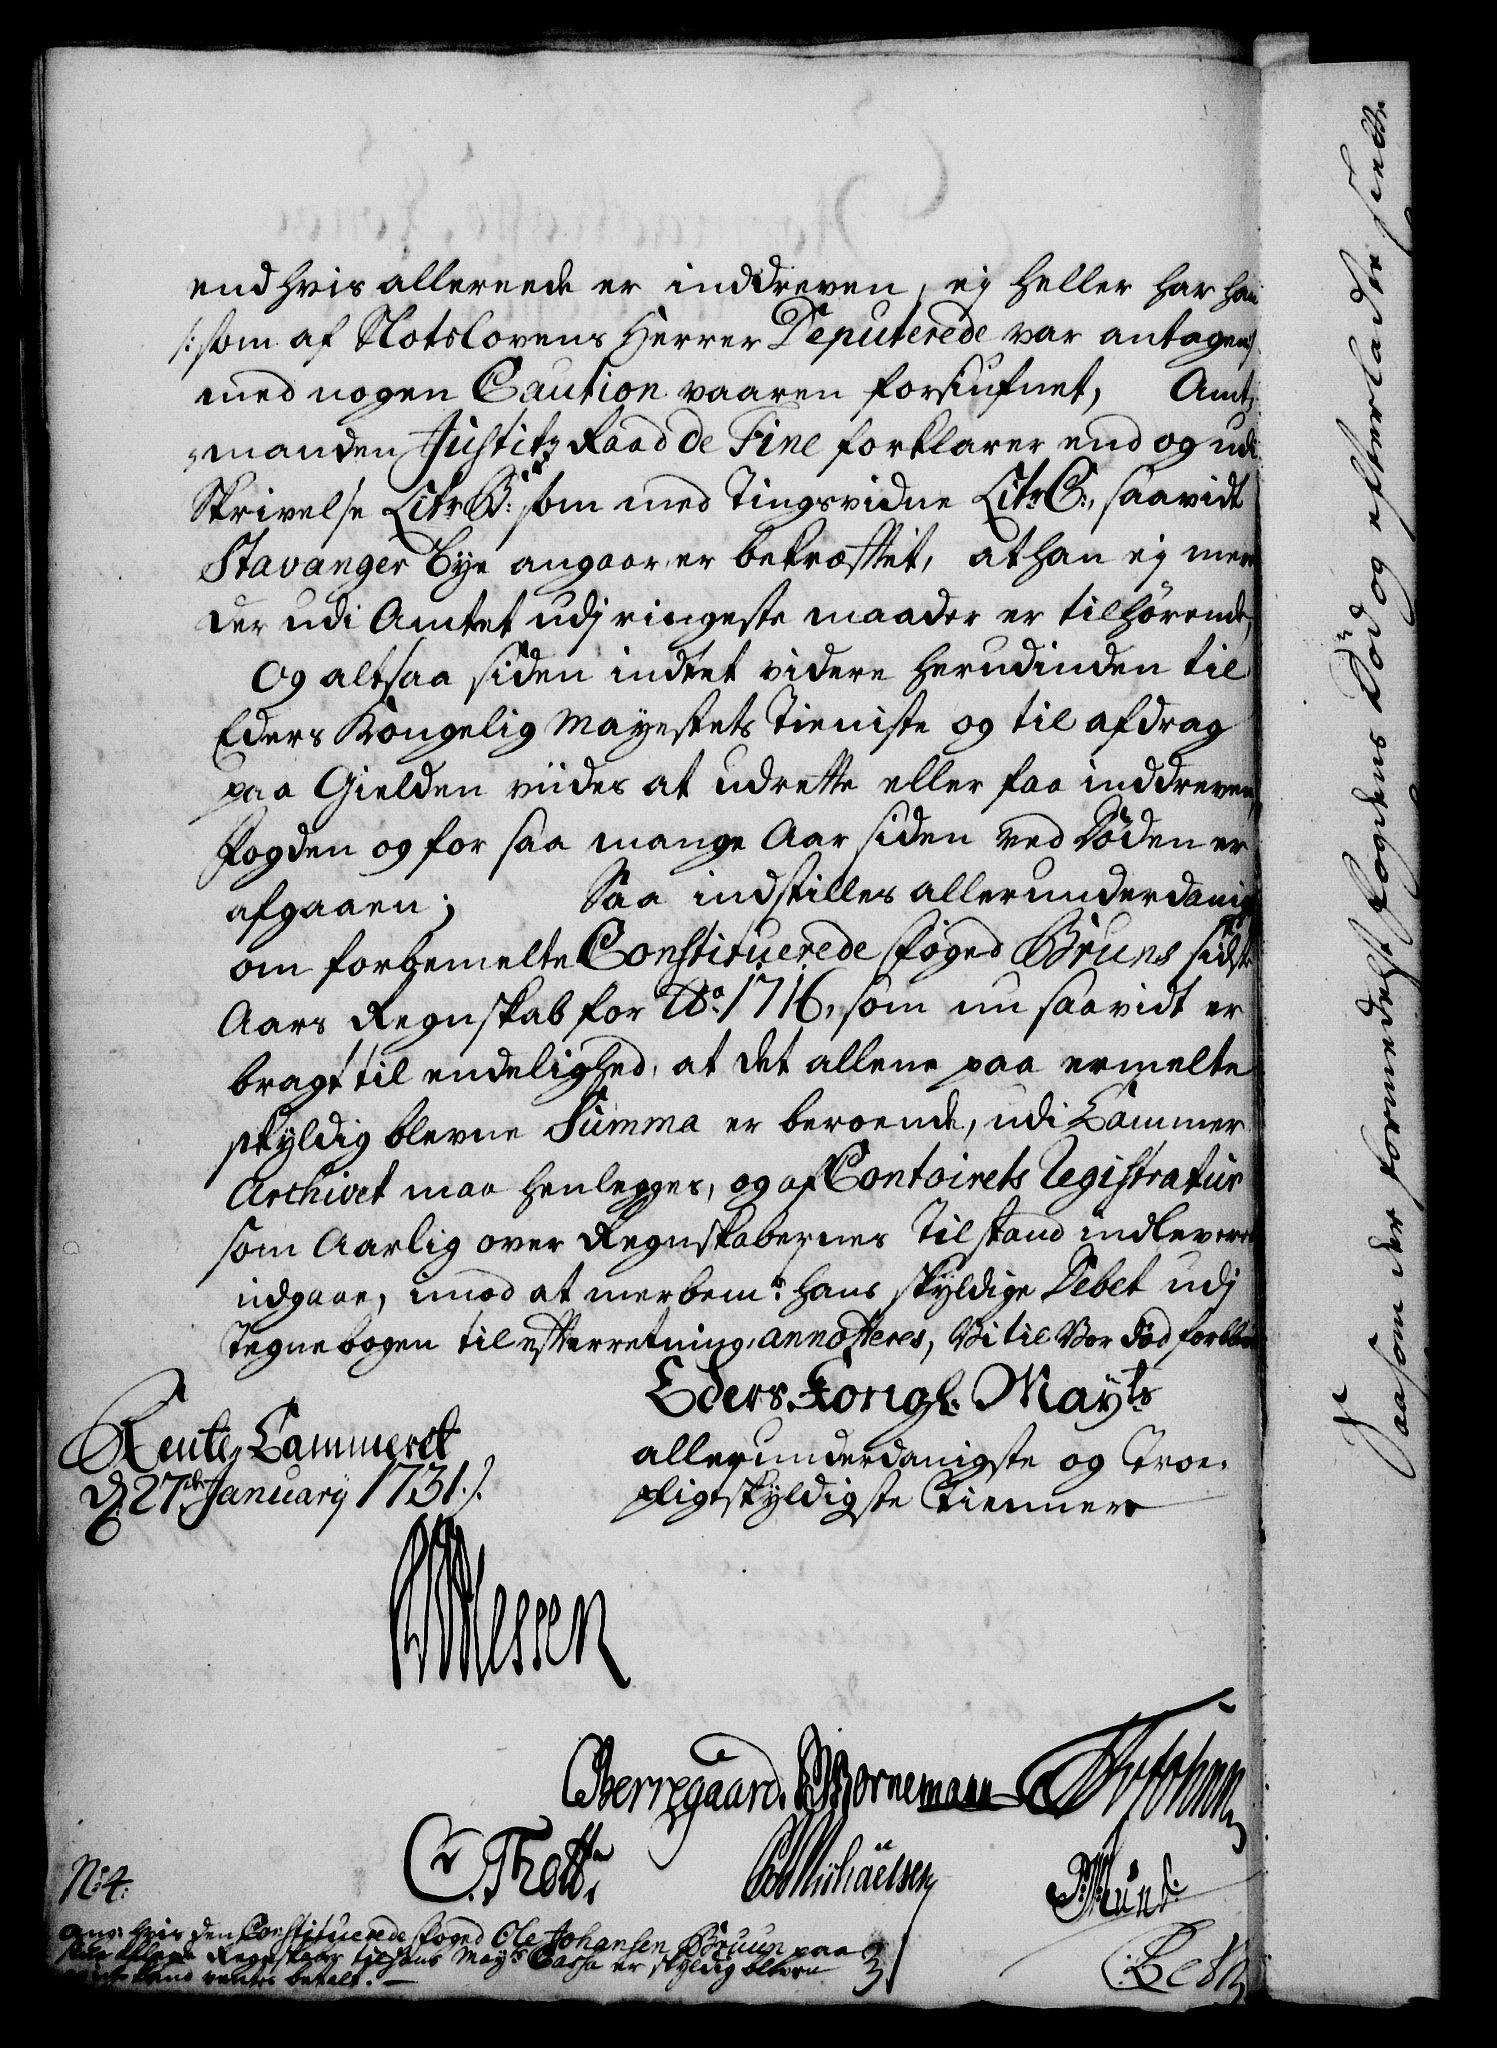 end hvis allereede er inddreven, ej heller har han
/: som af Slotslovens Herrer Deputerede var antagen :/
med nogen Caution vaaren forsiufnet, Amt,
,manden Justitz Raad de Fine forklarer end og udi
Skrivelse Litr. B: som med Tingsvidne Litr. C:, saavidt
Stavanger Bye angaar, er bekræfftet, at han ej meere
der udi Amtet udj ringeste maader er tilhörende,
Og altsaa siden indtet videre herudinden til
Eders Kongelig Mayestets Tieniste og til afdrag
paa Gielden viides at udrette eller faa inddreven,
fogden og for saa mange Aar siden ved Döden er
afgaaen; Saa indstilles allerunderdanigst
om forbemelte Constituerede foged Bruns sidste
Aars Regnskab for Ao. 1716, som nu saavidt er
bragt til endelighed, at det allene paa ermelte
skyldig blevne Summa er beroende, udi Cammer
Archivet maa henlegges, og af Contoirets Registratur
som Aarlig over Regnskabernes Tilstand indleveres
udgaae, imod at merbemte. hans skyldige Debet udj
Tegnebogen til efterretning annotteres, Vi til Vor Död forblive
Eders Kongl. Mayts.
allerunderdanigste og Troe-
pligtskyldigste Tiennere
Rente Cammeret
d. 27de January 1731.
Berregaard. Bornemann
C. Thott. Michäelsen Mund.
No. 4:
ang: hvis den Constituerede foged Ole Johansen Bruun paa
Regnskaber til hans Mayts Cassa er skyldig bleven
kand ventes betalt. —
Saasom der formedelst fogdens Död og efterladte slette